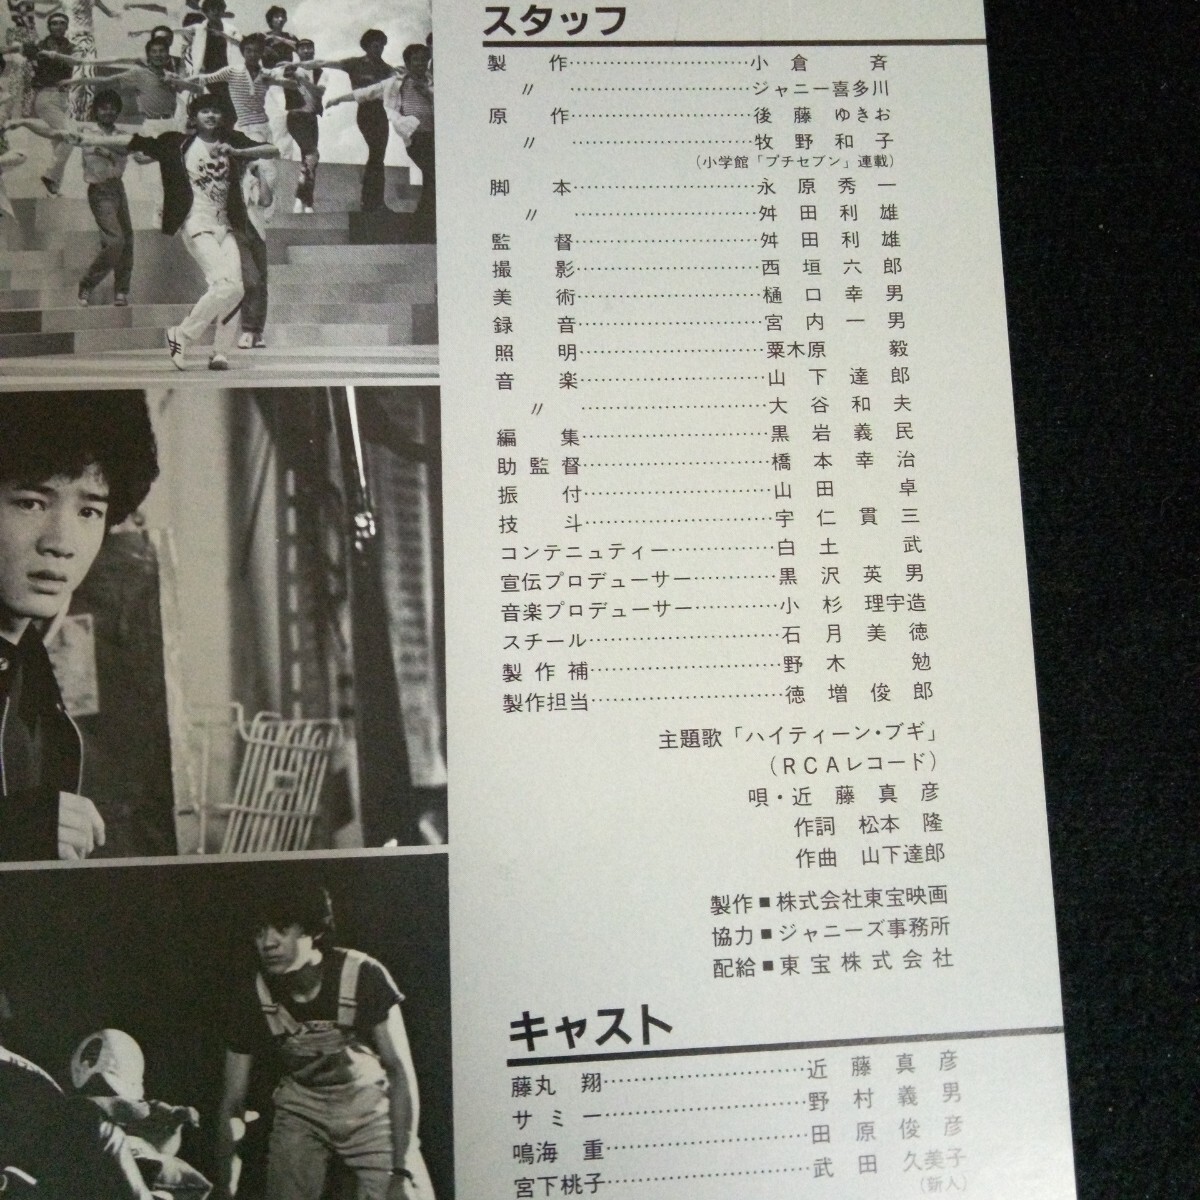 スタッフ
製作……………………小倉斉
〃……………………ジャニー喜多川
原作……………………後藤ゆきお
〃……………………牧野和子
（小学館「プチセブン」連載）
脚本……………………永原秀一
〃……………………舛田利雄
監督……………………舛田利雄
撮影……………………西垣六郎
美術……………………樋口幸男
録音……………………宮内一男
照明……………………粟木原毅
音楽……………………山下達郎
〃……………………大谷和夫
編集……………………黒岩義民
助監督……………………橋本幸治
振付……………………山田卓
技斗……………………宇仁貫三
コンテニュティー……………白土武
宣伝プロデューサー…………黒沢英男
音楽プロデューサー…………小杉理宇造
スチール……………………石月美徳
製作補……………………野木勉
製作担当……………………徳増俊郎
主題歌「ハイティーン・ブギ」
（RCAレコード）
唄・近藤真彦
作詞 松本隆
作曲 山下達郎
製作■株式会社東宝映画
協力■ジャニーズ事務所
配給■東宝株式会社
キャスト
藤丸翔……………………近藤真彦
サミー……………………野村義男
鳴海重……………………田原俊彦
宮下桃子……………………武田久美子
（新人）